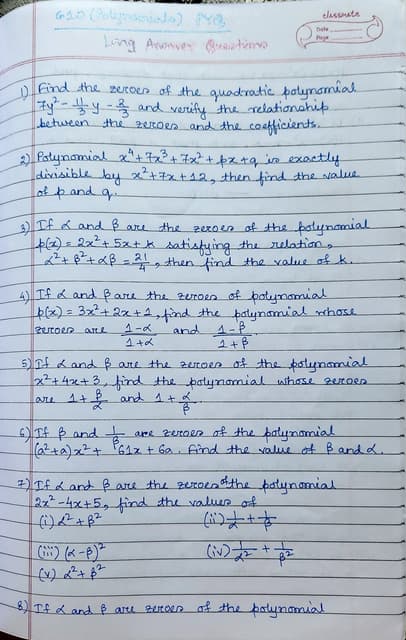 G10 (Polynomials) PYQ
classmate
Date
Page
Long Answer Questions
1) Find the zeroes of the quadratic polynomial
7y² - 11/3 y - 2/3 and verify the relationship
between the zeroes and the coefficients.
2) Polynomial x⁴ + 7x³ + 7x² + px + q is exactly
divisible by x² + 7x + 12, then find the value
of p and q.
3) If α and β are the zeroes of the polynomial
p(x) = 2x² + 5x + k satisfying the relation,
α² + β² + αβ = 21/4, then find the value of k.
4) If α and β are the zeroes of polynomial
p(x) = 3x² + 2x + 1, find the polynomial whose
zeroes are 1-α/1+α and 1-β/1+β.
5) If α and β are the zeroes of the polynomial
x² + 4x + 3, find the polynomial whose zeroes
are 1 + β/α and 1 + α/β.
6) If β and 1/β are zeroes of the polynomial
(a² + a)x² + 61x + 6a. Find the value of β and α.
7) If α and β are the zeroes of the polynomial
2x² - 4x + 5, find the values of
(i) α² + β² (ii) 1/α + 1/β
(iii) (α - β)² (iv) 1/α² + 1/β²
(v) α² + β²
8) If α and β are zeroes of the polynomial